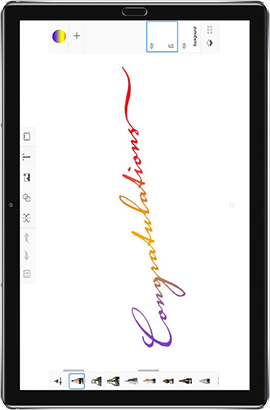 Congratulations
Background
T